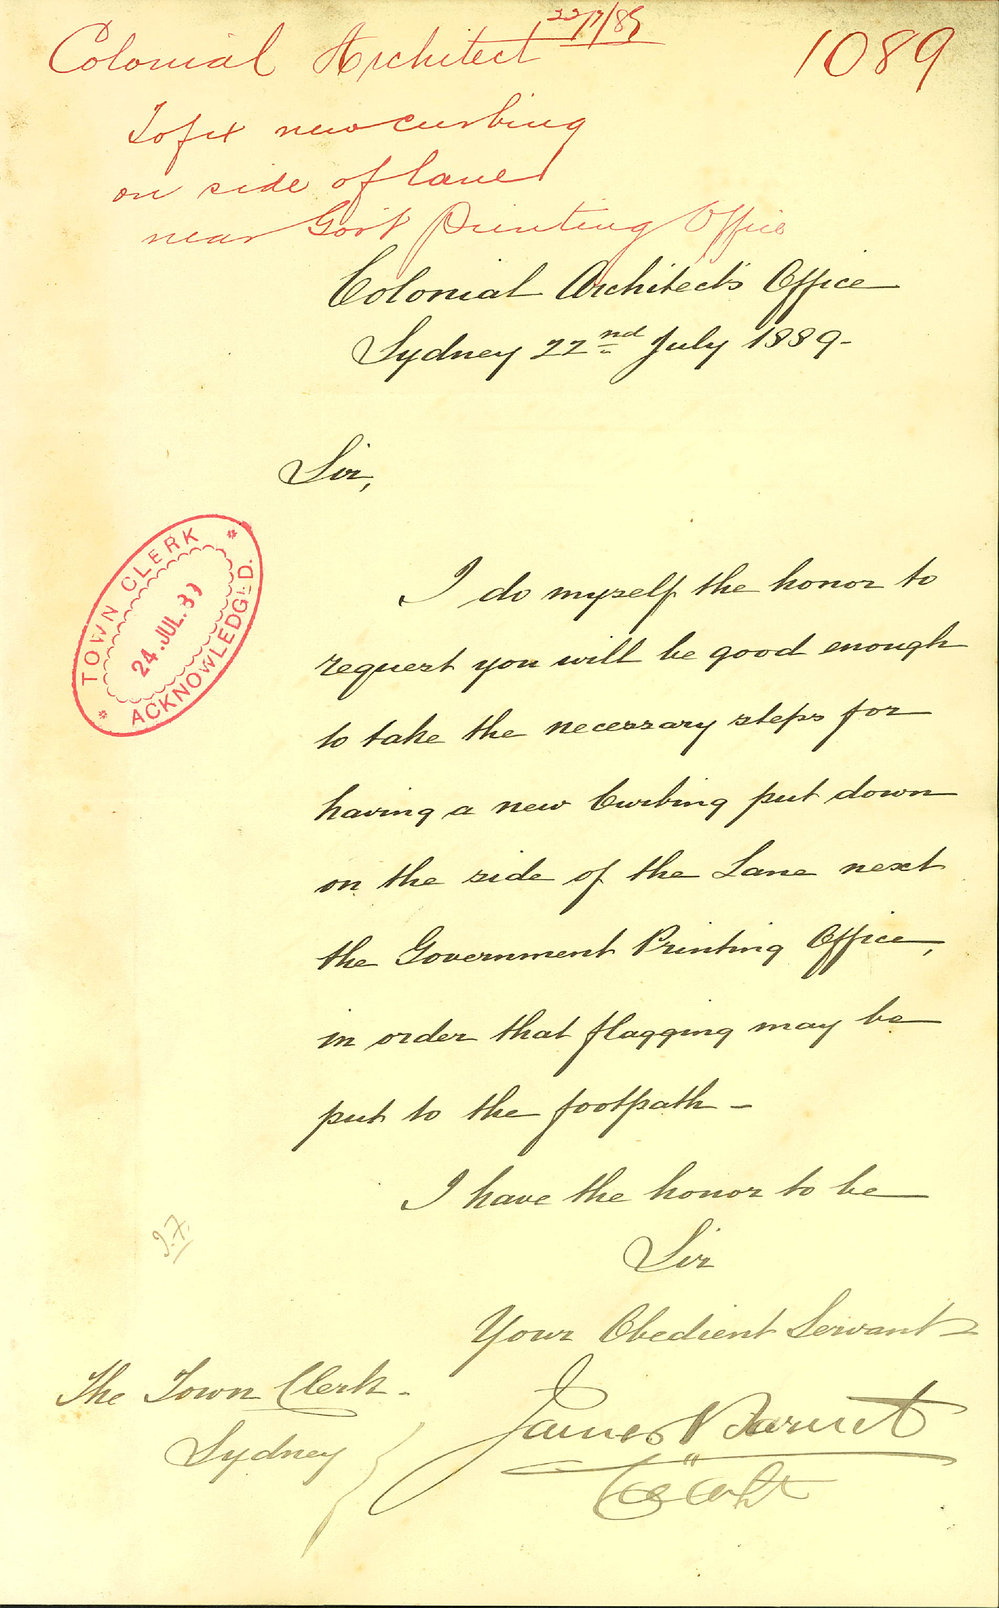 22/7/89
Colonial Architect
1089
To fix new curbing
on side of lane
near Govt Printing Office
Colonial Architect's Office
Sydney 22nd July 1889-
Sir,
TOWN CLERK
24.JUL.89
ACKNOWLEDGED.
I do myself the honor to
request you will be good enough
to take the necessary steps for
having a new Curbing put down
on the side of the Lane next
the Government Printing Office,
in order that flagging may be
put to the footpath -
I have the honor to be
Sir
Your Obedient Servant
The Town Clerk -
Sydney
James Barnet